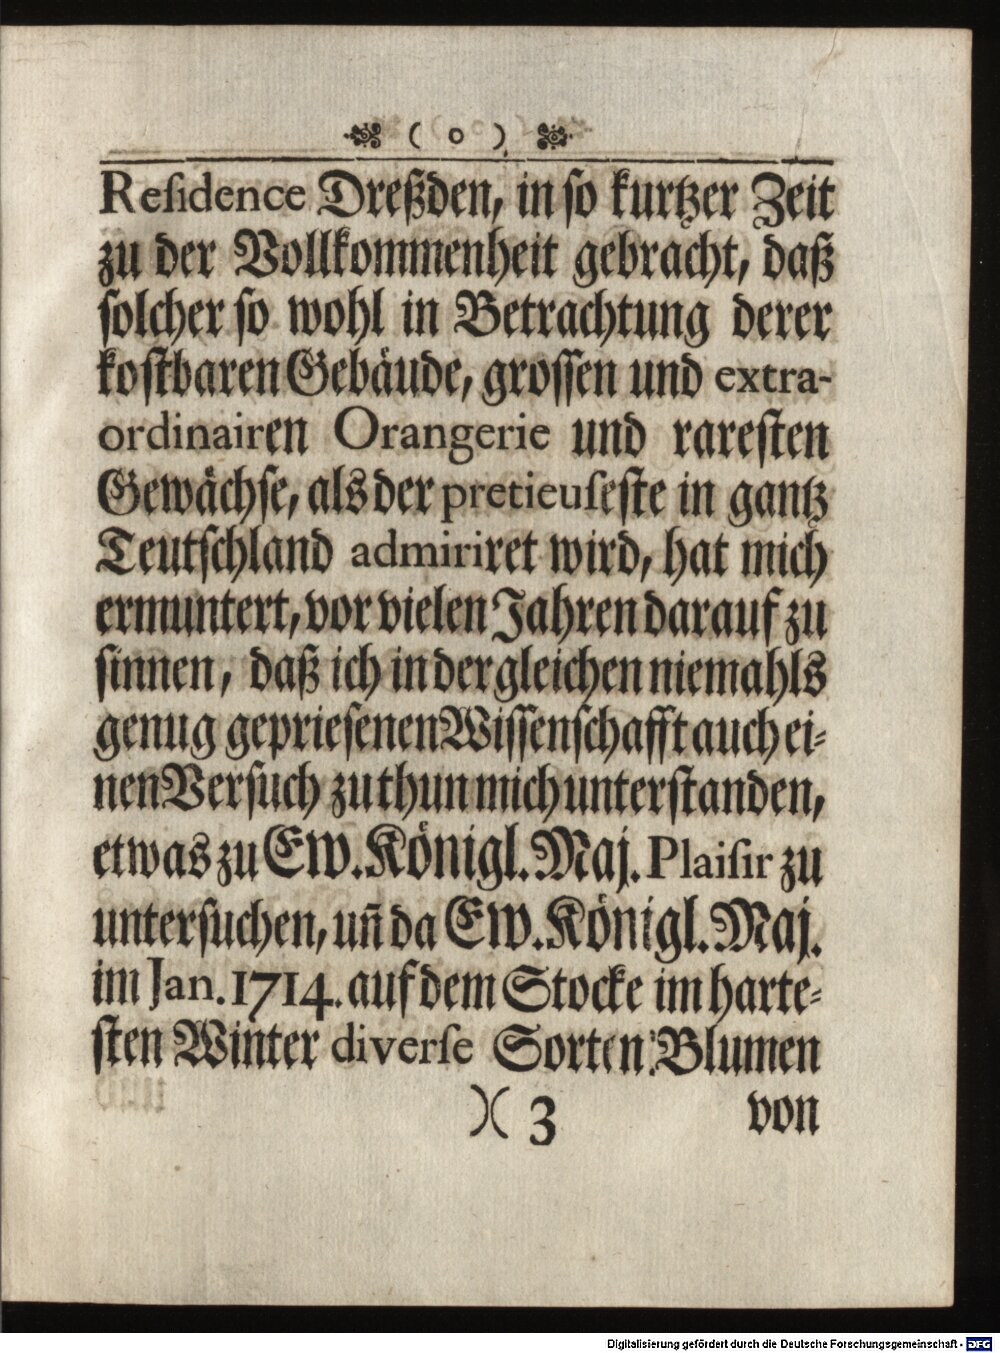 ( o )
Reſidence Dreßden, in ſo kurtzer Zeit
zu der Vollkommenheit gebracht, daß
ſolcher ſo wohl in Betrachtung derer
koſtbaren Gebäude, groſſen und extra-
ordinairen Orangerie und rareſten
Gewächſe, als der pretieuſeſte in gantz
Teutſchland admiriret wird, hat mich
ermuntert, vor vielen Jahren darauf zu
ſinnen, daß ich in dergleichen niemahls
genug geprieſenen Wiſſenſchafft auch ei-
nen Verſuch zu thun mich unterſtanden,
etwas zu Ew. Königl. Maj. Plaiſir zu
unterſuchen, uñ da Ew. Königl. Maj.
im Jan. 1714. auf dem Stocke im harte-
ſten Winter diverſe Sorten Blumen
)( 3 von
Digitalisierung gefördert durch die Deutsche Forschungsgemeinschaft - DFG